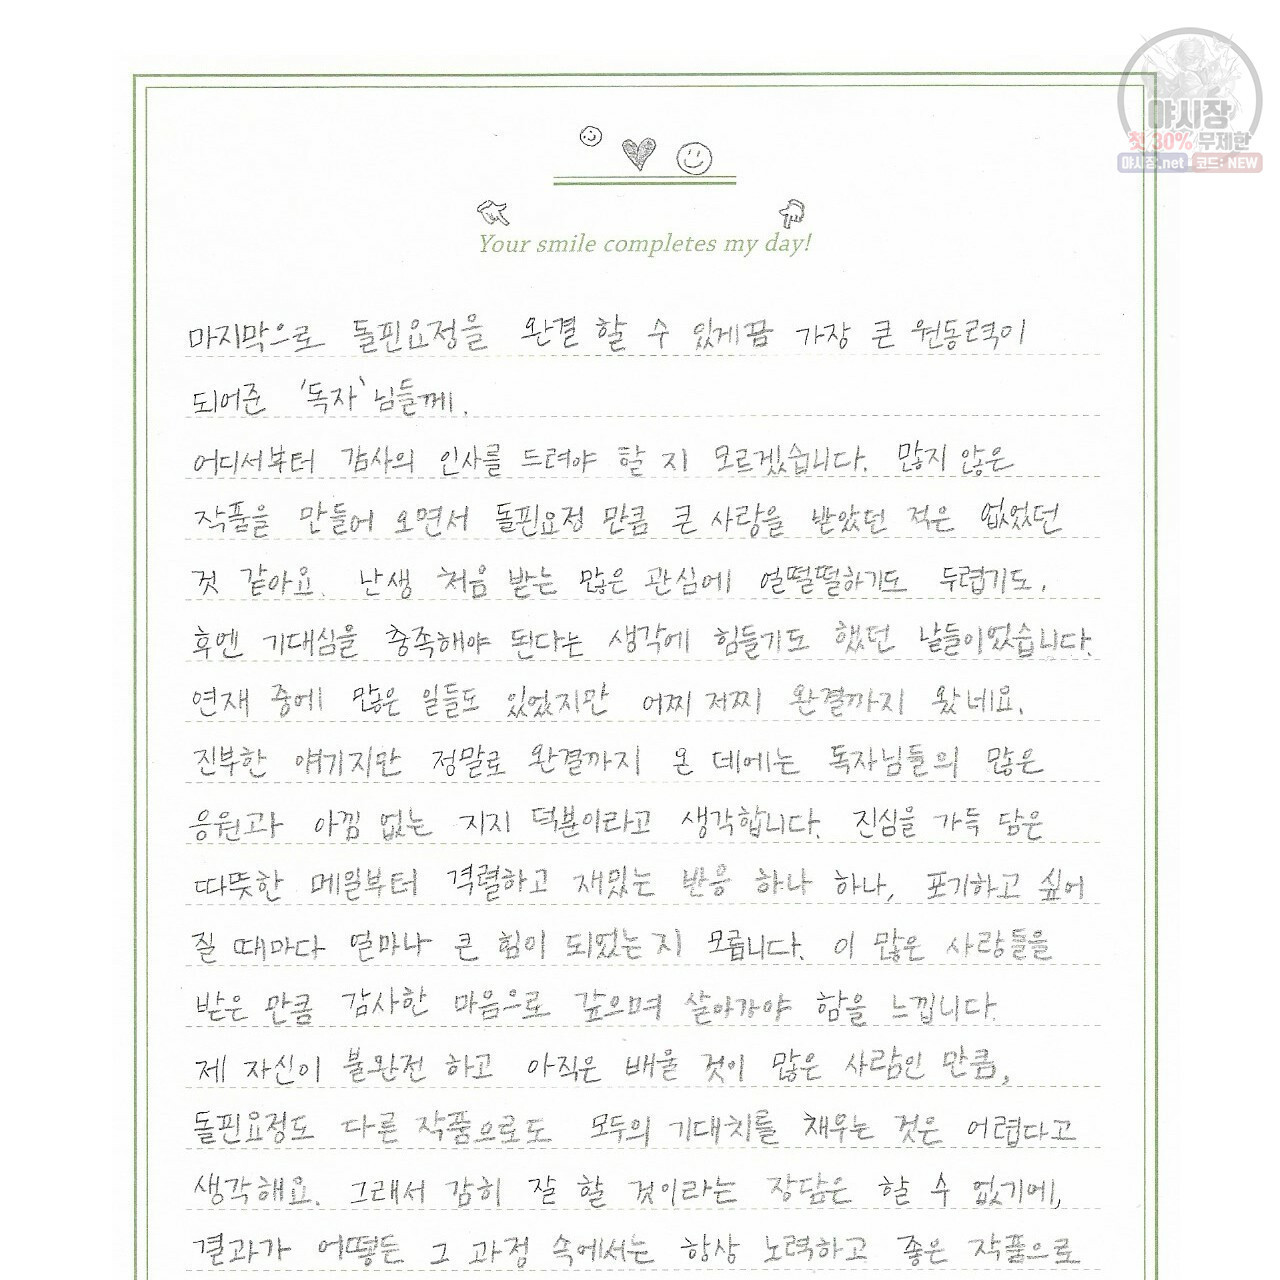 야시장
첫 30% 무제한
야시장.net 코드: NEW
Your smile completes my day!
마지막으로 돌핀요정을 완결 할 수 있게끔 가장 큰 원동력이
되어준 '독자'님들께.
어디서부터 감사의 인사를 드려야 할 지 모르겠습니다. 많지 않은
작품을 만들어 오면서 돌핀요정 만큼 큰 사랑을 받았던 적은 없었던
것 같아요. 난생 처음 받는 많은 관심에 얼떨떨하기도 두렵기도,
후엔 기대심을 충족해야 된다는 생각에 힘들기도 했던 날들이었습니다.
연재 중에 많은 일들도 있었지만 어찌 저찌 완결까지 왔네요.
진부한 얘기지만 정말로 완결까지 온 데에는 독자님들의 많은
응원과 아낌 없는 지지 덕분이라고 생각합니다. 진심을 가득 담은
따뜻한 메일부터 격렬하고 재밌는 반응 하나 하나, 포기하고 싶어
질 때마다 얼마나 큰 힘이 되었는지 모릅니다. 이 많은 사랑들을
받은 만큼 감사한 마음으로 갚으며 살아가야 함을 느낍니다.
제 자신이 불완전 하고 아직은 배울 것이 많은 사람인 만큼,
돌핀요정도 다른 작품으로도 모두의 기대치를 채우는 것은 어렵다고
생각해요. 그래서 감히 잘 할 것이라는 장담은 할 수 없기에,
결과가 어떻든 그 과정 속에서는 항상 노력하고 좋은 작품으로